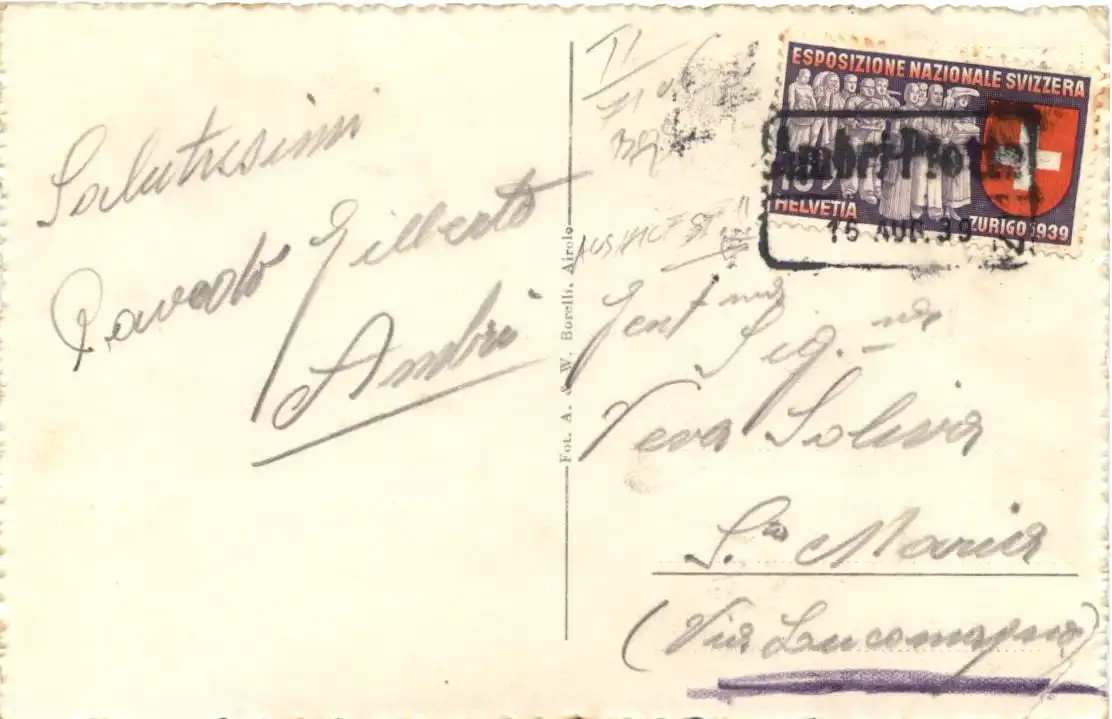 Salutissimi
Gilberto
Ambri
Fot. A. & W. Borelli, Airolo
ESPOSIZIONE NAZIONALE SVIZZERA
HELVETIA
ZURIGO 1939
Ambri-Piotta
16 AUG. 39
Gent.ma
Sig.na
Veva Soliva
S.ta Maria
(Via Lucomagno)